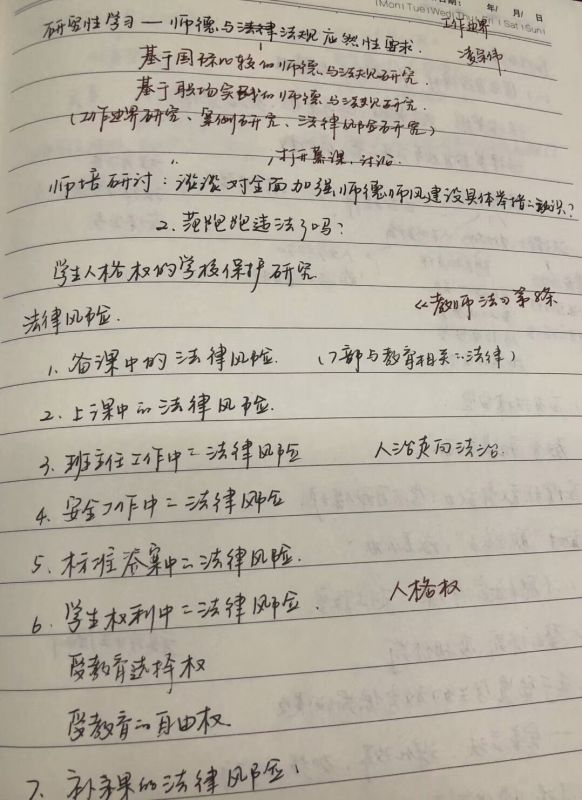 日期: 年/ 月/ 日
研究性学习——师德与法律法规应然性要求. 工作边界
基于国际比较的师德与法规研究.
基于职场实践的师德与法规研究.
(工作边界研究、案例研究、法律风险研究)
打开慕课,讨论.
师培研讨:谈谈对全面加强师德师风建设具体举措的认识?
2.范跑跑违法了吗?
学生人格权的学校保护研究
《教师法》第8条
法律风险.
1.备课中的法律风险. (7部与教育相关的法律)
2.上课中的法律风险.
3.班主任工作中的法律风险 人治走向法治.
4.安全工作中的法律风险
5.标准答案中的法律风险.
6.学生权利中的法律风险. 人格权
受教育选择权
受教育的自由权
7.补课的法律风险: